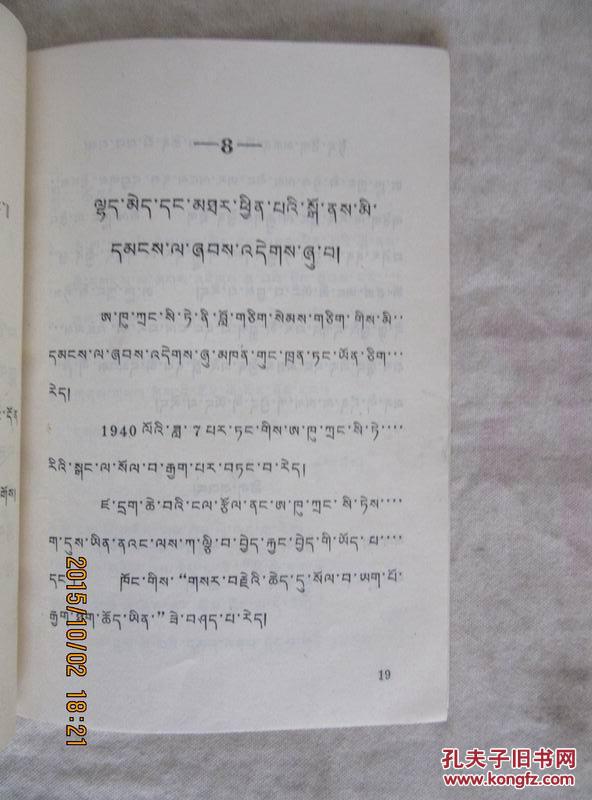 —8—
ལྷད་མེད་དང་མཐར་ཕྱིན་པའི་སྒོ་ནས་མི་
དམངས་ལ་ཞབས་འདེགས་ཞུ་བ།
ཨ་ཁུ་ཀྲང་སི་ཏེ་ནི་བློ་གཅིག་སེམས་གཅིག་གིས་མི་··
དམངས་ལ་ཞབས་འདེགས་ཞུ་མཁན་གུང་ཁྲན་ཏང་ཡོན་ཅིག་··
རེད།
1940 ལོའི་ཟླ་ 7 པར་ཏང་གིས་ཨ་ཁུ་ཀྲང་སི་ཏེ་····
རིའི་སྒང་ལ་སོལ་བ་རྒྱག་པར་བཏང་བ་རེད།
ཇ་དྲག་ཆེ་བའི་ངལ་རྩོལ་ནང་ཨ་ཁུ་ཀྲང་སི་ཏེས་····
ག་དུས་ཡིན་ནའང་ལས་ཀ་ལྕི་བ་བྱེད་རྐྱང་བྱེད་གི་ཡོད་པ་····
དང་ ཁོང་གིས་“གསར་བརྗེའི་ཆེད་དུ་སོལ་བ་ཨག་པོ་
རྒྱག་ ཆོད་ཡིན་”ཟེ་བཤད་པ་རེད།
19
དོན
2015/10/02 18:21
孔夫子旧书网
www.kongfz.com